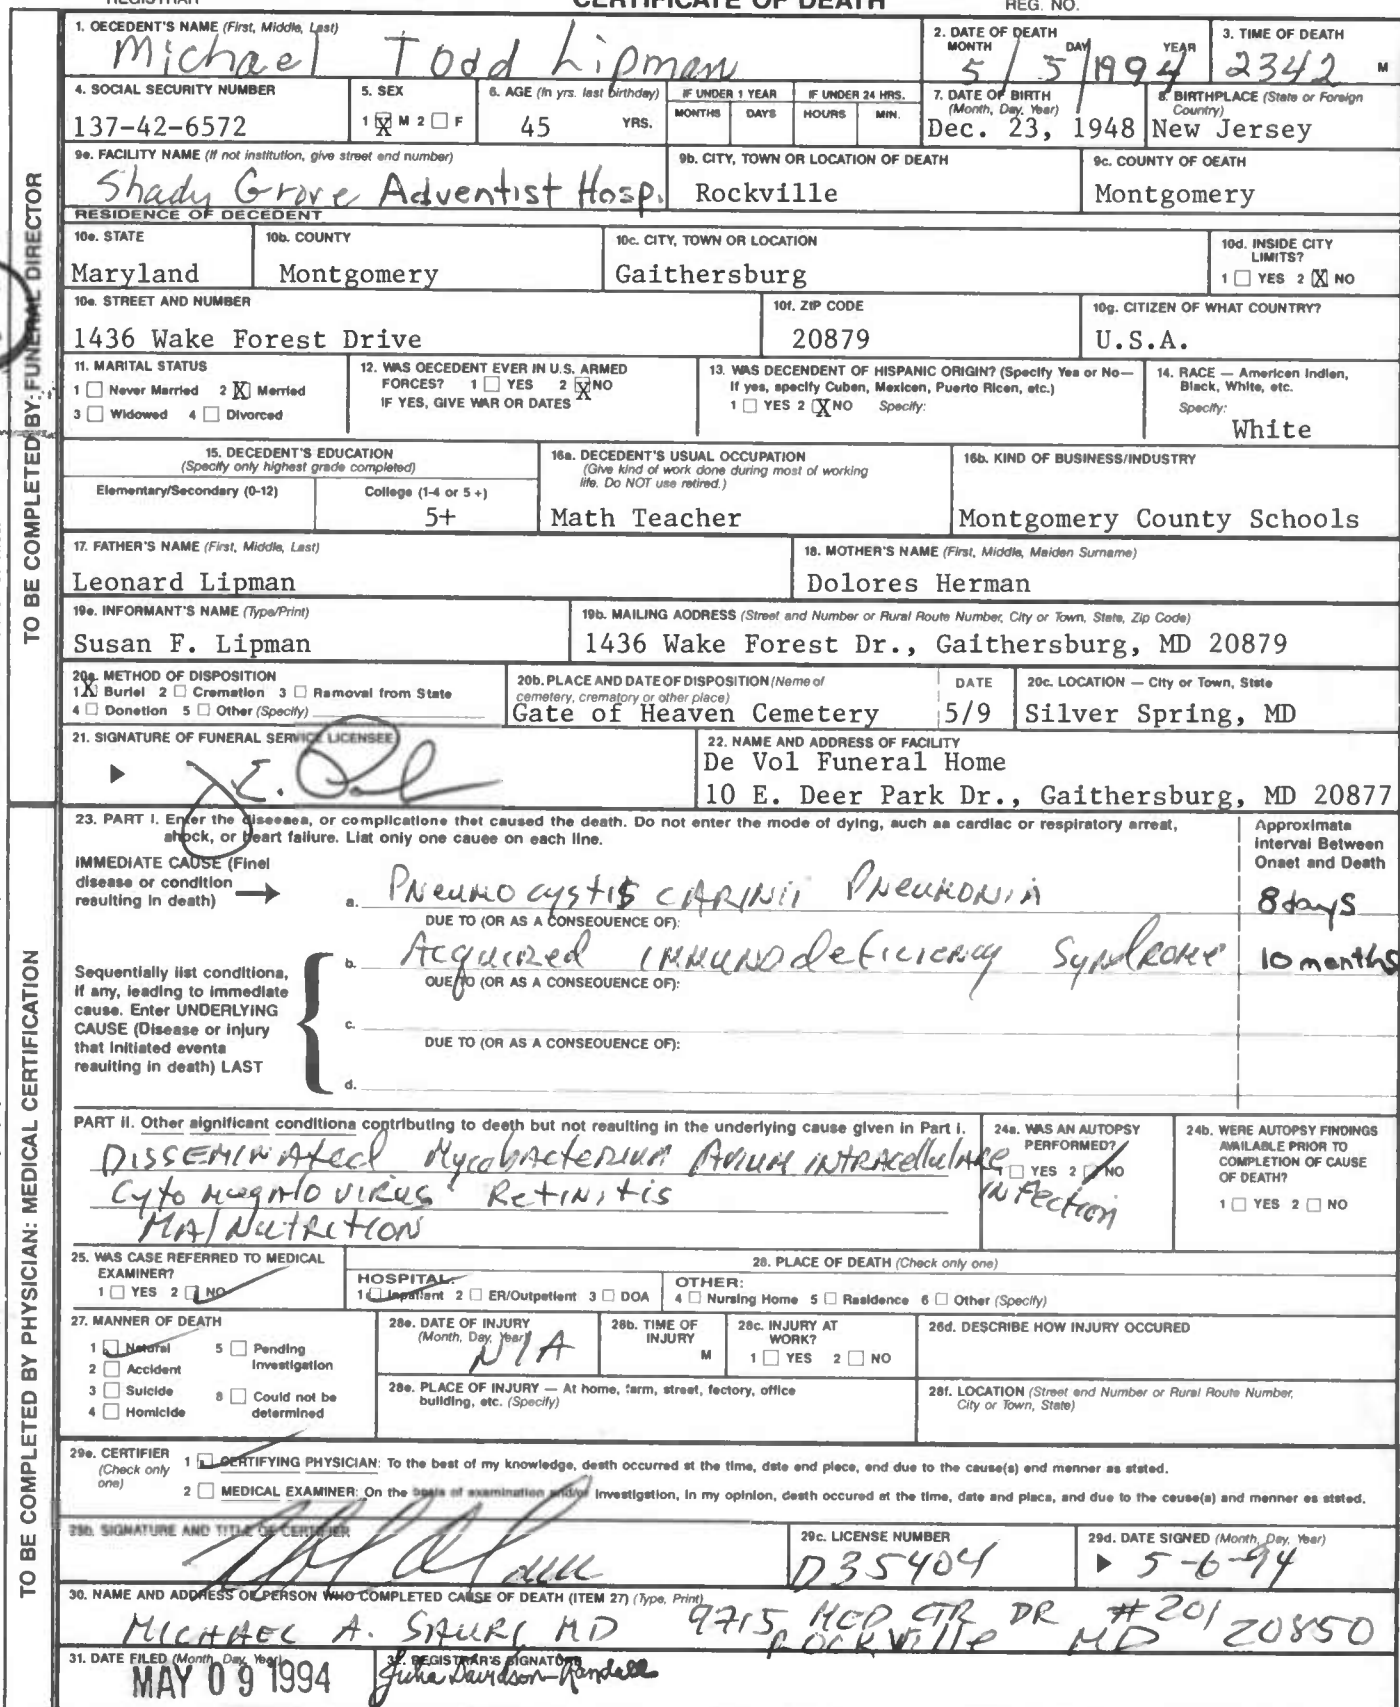 REGISTRAR CERTIFICATE OF DEATH REG. NO.
TO BE COMPLETED BY: FUNERAL DIRECTOR
1. DECEDENT'S NAME (First, Middle, Last)
Michael Todd Lipman
2. DATE OF DEATH
MONTH DAY YEAR
5 / 5 / 1994
3. TIME OF DEATH
2342 M
4. SOCIAL SECURITY NUMBER
137-42-6572
5. SEX
1 X M 2 F
6. AGE (In yrs. last birthday)
45 YRS.
IF UNDER 1 YEAR
MONTHS DAYS
IF UNDER 24 HRS.
HOURS MIN.
7. DATE OF BIRTH
(Month, Day, Year)
Dec. 23, 1948
8. BIRTHPLACE (State or Foreign
Country)
New Jersey
9a. FACILITY NAME (If not institution, give street and number)
Shady Grove Adventist Hosp.
9b. CITY, TOWN OR LOCATION OF DEATH
Rockville
9c. COUNTY OF DEATH
Montgomery
RESIDENCE OF DECEDENT
10a. STATE
Maryland
10b. COUNTY
Montgomery
10c. CITY, TOWN OR LOCATION
Gaithersburg
10d. INSIDE CITY
LIMITS?
1 YES 2 X NO
10e. STREET AND NUMBER
1436 Wake Forest Drive
10f. ZIP CODE
20879
10g. CITIZEN OF WHAT COUNTRY?
U.S.A.
11. MARITAL STATUS
1 Never Married 2 X Married
3 Widowed 4 Divorced
12. WAS DECEDENT EVER IN U.S. ARMED
FORCES? 1 YES 2 X NO
IF YES, GIVE WAR OR DATES
13. WAS DECENDENT OF HISPANIC ORIGIN? (Specify Yes or No—
If yes, specify Cuban, Mexican, Puerto Rican, etc.)
1 YES 2 X NO Specify:
14. RACE — American Indian,
Black, White, etc.
Specify:
White
15. DECEDENT'S EDUCATION
(Specify only highest grade completed)
Elementary/Secondary (0-12) College (1-4 or 5+)
5+
16a. DECEDENT'S USUAL OCCUPATION
(Give kind of work done during most of working
life. Do NOT use retired.)
Math Teacher
16b. KIND OF BUSINESS/INDUSTRY
Montgomery County Schools
17. FATHER'S NAME (First, Middle, Last)
Leonard Lipman
18. MOTHER'S NAME (First, Middle, Maiden Surname)
Dolores Herman
19a. INFORMANT'S NAME (Type/Print)
Susan F. Lipman
19b. MAILING ADDRESS (Street and Number or Rural Route Number, City or Town, State, Zip Code)
1436 Wake Forest Dr., Gaithersburg, MD 20879
20a. METHOD OF DISPOSITION
1 X Burial 2 Cremation 3 Removal from State
4 Donation 5 Other (Specify)
20b. PLACE AND DATE OF DISPOSITION (Name of
cemetery, crematory or other place)
Gate of Heaven Cemetery
DATE
5/9
20c. LOCATION — City or Town, State
Silver Spring, MD
21. SIGNATURE OF FUNERAL SERVICE LICENSEE
22. NAME AND ADDRESS OF FACILITY
De Vol Funeral Home
10 E. Deer Park Dr., Gaithersburg, MD 20877
TO BE COMPLETED BY PHYSICIAN: MEDICAL CERTIFICATION
23. PART I. Enter the diseases, or complications that caused the death. Do not enter the mode of dying, such as cardiac or respiratory arrest,
shock, or heart failure. List only one cause on each line.
Approximate
Interval Between
Onset and Death
IMMEDIATE CAUSE (Final
disease or condition
resulting in death)
a. Pneumocystis CARINII PNEUMONIA 8 days
DUE TO (OR AS A CONSEQUENCE OF):
Sequentially list conditions,
if any, leading to immediate
cause. Enter UNDERLYING
CAUSE (Disease or injury
that initiated events
resulting in death) LAST
b. Acquired immunodeficiency Syndrome 10 months
DUE TO (OR AS A CONSEQUENCE OF):
c.
DUE TO (OR AS A CONSEQUENCE OF):
d.
PART II. Other significant conditions contributing to death but not resulting in the underlying cause given in Part I.
DISSEMINATED Mycobacterium Avium intracellulare infection
Cytomegalovirus Retinitis
MALNUTRITION
24a. WAS AN AUTOPSY
PERFORMED?
1 YES 2 NO
24b. WERE AUTOPSY FINDINGS
AVAILABLE PRIOR TO
COMPLETION OF CAUSE
OF DEATH?
1 YES 2 NO
25. WAS CASE REFERRED TO MEDICAL
EXAMINER?
1 YES 2 NO
26. PLACE OF DEATH (Check only one)
HOSPITAL:
1 Inpatient 2 ER/Outpatient 3 DOA
OTHER:
4 Nursing Home 5 Residence 6 Other (Specify)
27. MANNER OF DEATH
1 Natural 5 Pending
Investigation
2 Accident
3 Suicide 6 Could not be
determined
4 Homicide
28a. DATE OF INJURY
(Month, Day, Year)
N/A
28b. TIME OF
INJURY
M
28c. INJURY AT
WORK?
1 YES 2 NO
28d. DESCRIBE HOW INJURY OCCURED
28e. PLACE OF INJURY — At home, farm, street, factory, office
building, etc. (Specify)
28f. LOCATION (Street and Number or Rural Route Number,
City or Town, State)
29a. CERTIFIER
(Check only
one)
1 CERTIFYING PHYSICIAN: To the best of my knowledge, death occurred at the time, date and place, and due to the cause(s) and manner as stated.
2 MEDICAL EXAMINER: On the basis of examination and/or investigation, in my opinion, death occured at the time, date and place, and due to the cause(s) and manner as stated.
29b. SIGNATURE AND TITLE OF CERTIFIER
29c. LICENSE NUMBER
D35404
29d. DATE SIGNED (Month, Day, Year)
5-6-94
30. NAME AND ADDRESS OF PERSON WHO COMPLETED CAUSE OF DEATH (ITEM 27) (Type, Print)
MICHAEL A. SAURI, MD 9715 MED CTR DR #201
ROCKVILLE MD 20850
31. DATE FILED (Month, Day, Year)
MAY 09 1994
32. REGISTRAR'S SIGNATURE
Julia Davidson-Randall